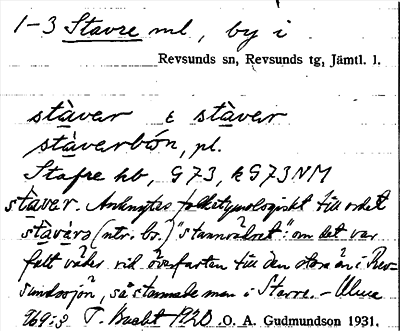 1-3 Stavre ml, by i
Revsunds sn, Revsunds tg, Jämtl. l.
stàver & stàver
stàverbón, pl.
Stafre hb, G73, kG73NM
stàver. Anknytes folketymologiskt till ordet
(ntr. bs.) "stannvädret": om det var
fult väder vid överfarten till den stora ön i Rev-
sundssjön, så stannade man i Stavre. -
169:3 T. 1920 O. A. Gudmundson 1931.